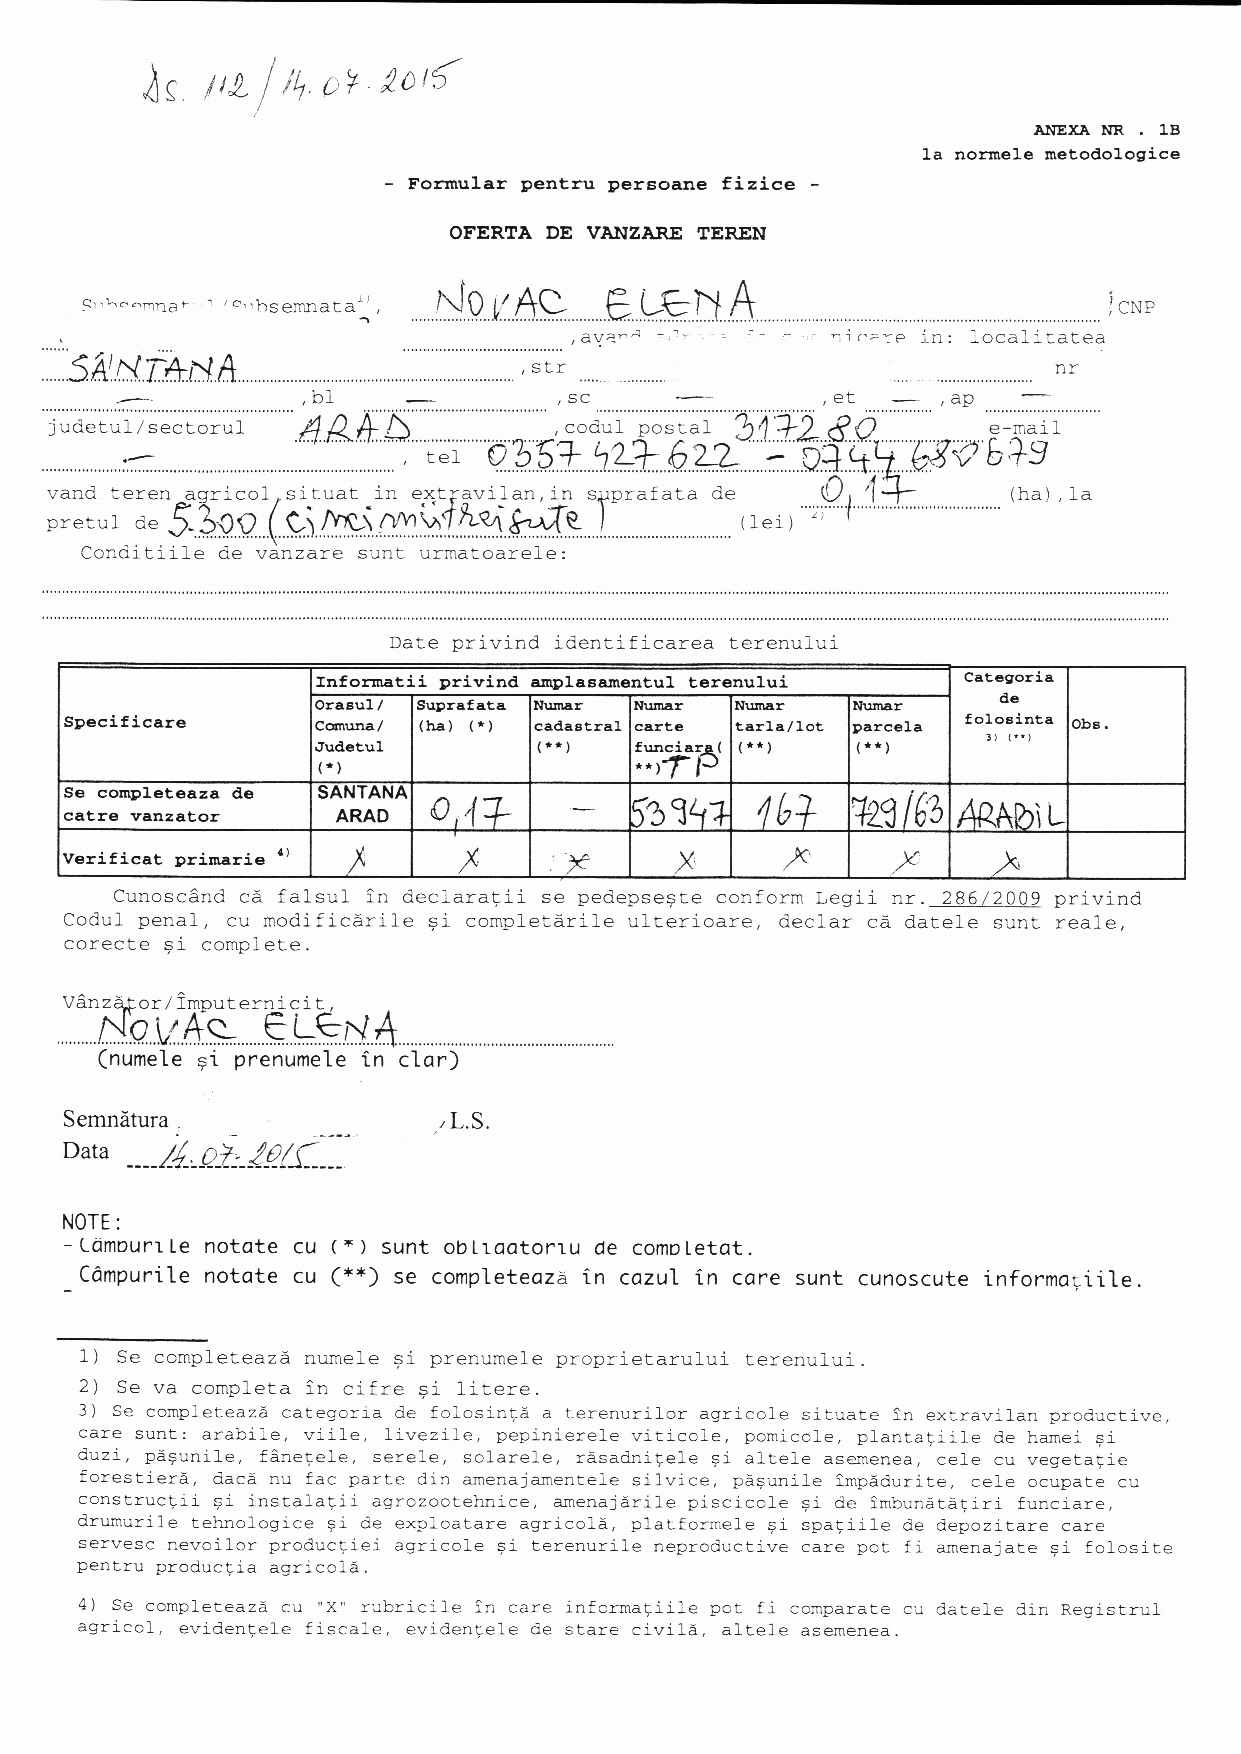 Ds. 112/14.07.2015
ANEXA NR . 1B
la normele metodologice
- Formular pentru persoane fizice -
OFERTA DE VANZARE TEREN
/Subsemnata 1), NOVAC ELENA CNP
, avand in: localitatea
SÂNTANA ,str nr
— ,bl — ,sc — ,et — ,ap —
judetul/sectorul ARAD ,codul postal 317280 e-mail
— , tel 0357 427 622 - 0744 680679
vand teren agricol situat in extravilan,in suprafata de 0,17 (ha),la
pretul de 5.300 (cincimiitreisute) (lei) 2)
Conditiile de vânzare sunt urmatoarele:
Date privind identificarea terenului
Specificare
Informatii privind amplasamentul terenului
Orasul/ Comuna/ Judetul (*)
Suprafata (ha) (*)
Numar cadastral (**)
Numar carte funciara( **) TP
Numar tarla/lot (**)
Numar parcela (**)
Categoria de folosinta 3) (**)
Obs.
Se completeaza de catre vanzator SANTANA ARAD 0,17 — 53947 167 729/63 ARABIL
Verificat primarie 4) X X X X X X X
Cunoscând că falsul în declarații se pedepsește conform Legii nr. 286/2009 privind
Codul penal, cu modificările și completările ulterioare, declar că datele sunt reale,
corecte și complete.
Vânzător/Împuternicit,
NOVAC ELENA
(numele și prenumele în clar)
Semnătura L.S.
Data 14.07.2015
NOTE:
- Câmpurile notate cu (*) sunt obligatoriu de completat.
- Câmpurile notate cu (**) se completează în cazul în care sunt cunoscute informațiile.
1) Se completează numele și prenumele proprietarului terenului.
2) Se va completa în cifre și litere.
3) Se completează categoria de folosință a terenurilor agricole situate în extravilan productive,
care sunt: arabile, viile, livezile, pepinierele viticole, pomicole, plantațiile de hamei și
duzi, pășunile, fânețele, serele, solarele, răsadnițele și altele asemenea, cele cu vegetație
forestieră, dacă nu fac parte din amenajamentele silvice, pășunile împădurite, cele ocupate cu
construcții și instalații agrozootehnice, amenajările piscicole și de îmbunătățiri funciare,
drumurile tehnologice și de exploatare agricolă, platformele și spațiile de depozitare care
servesc nevoilor producției agricole și terenurile neproductive care pot fi amenajate și folosite
pentru producția agricolă.
4) Se completează cu "X" rubricile în care informațiile pot fi comparate cu datele din Registrul
agricol, evidențele fiscale, evidențele de stare civilă, altele asemenea.